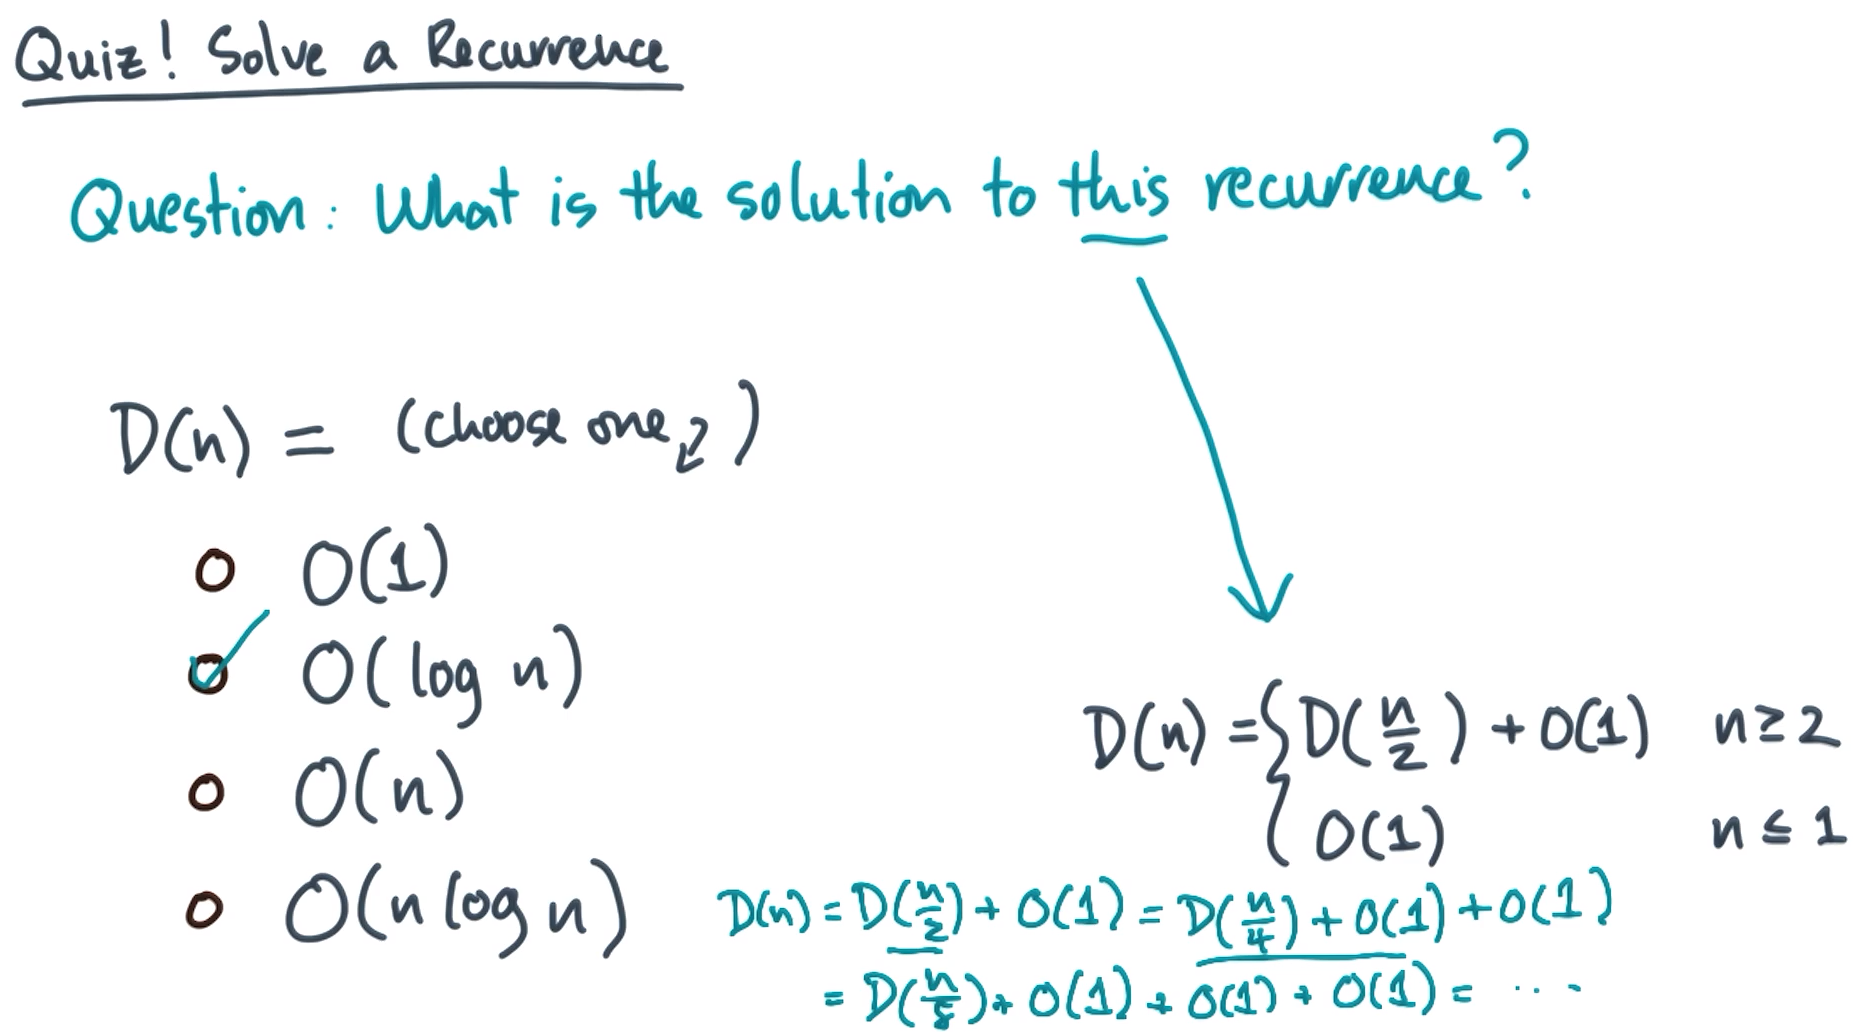 Quiz! Solve a Recurrence
Question: What is the solution to this recurrence?
D(n) = (choose one )
O(1)
O(log n)
O(n)
O(n log n)
D(n) = { D(n/2) + O(1) n ≥ 2
O(1) n ≤ 1
D(n) = D(n/2) + O(1) = D(n/4) + O(1) + O(1)
= D(n/8) + O(1) + O(1) + O(1) = ...